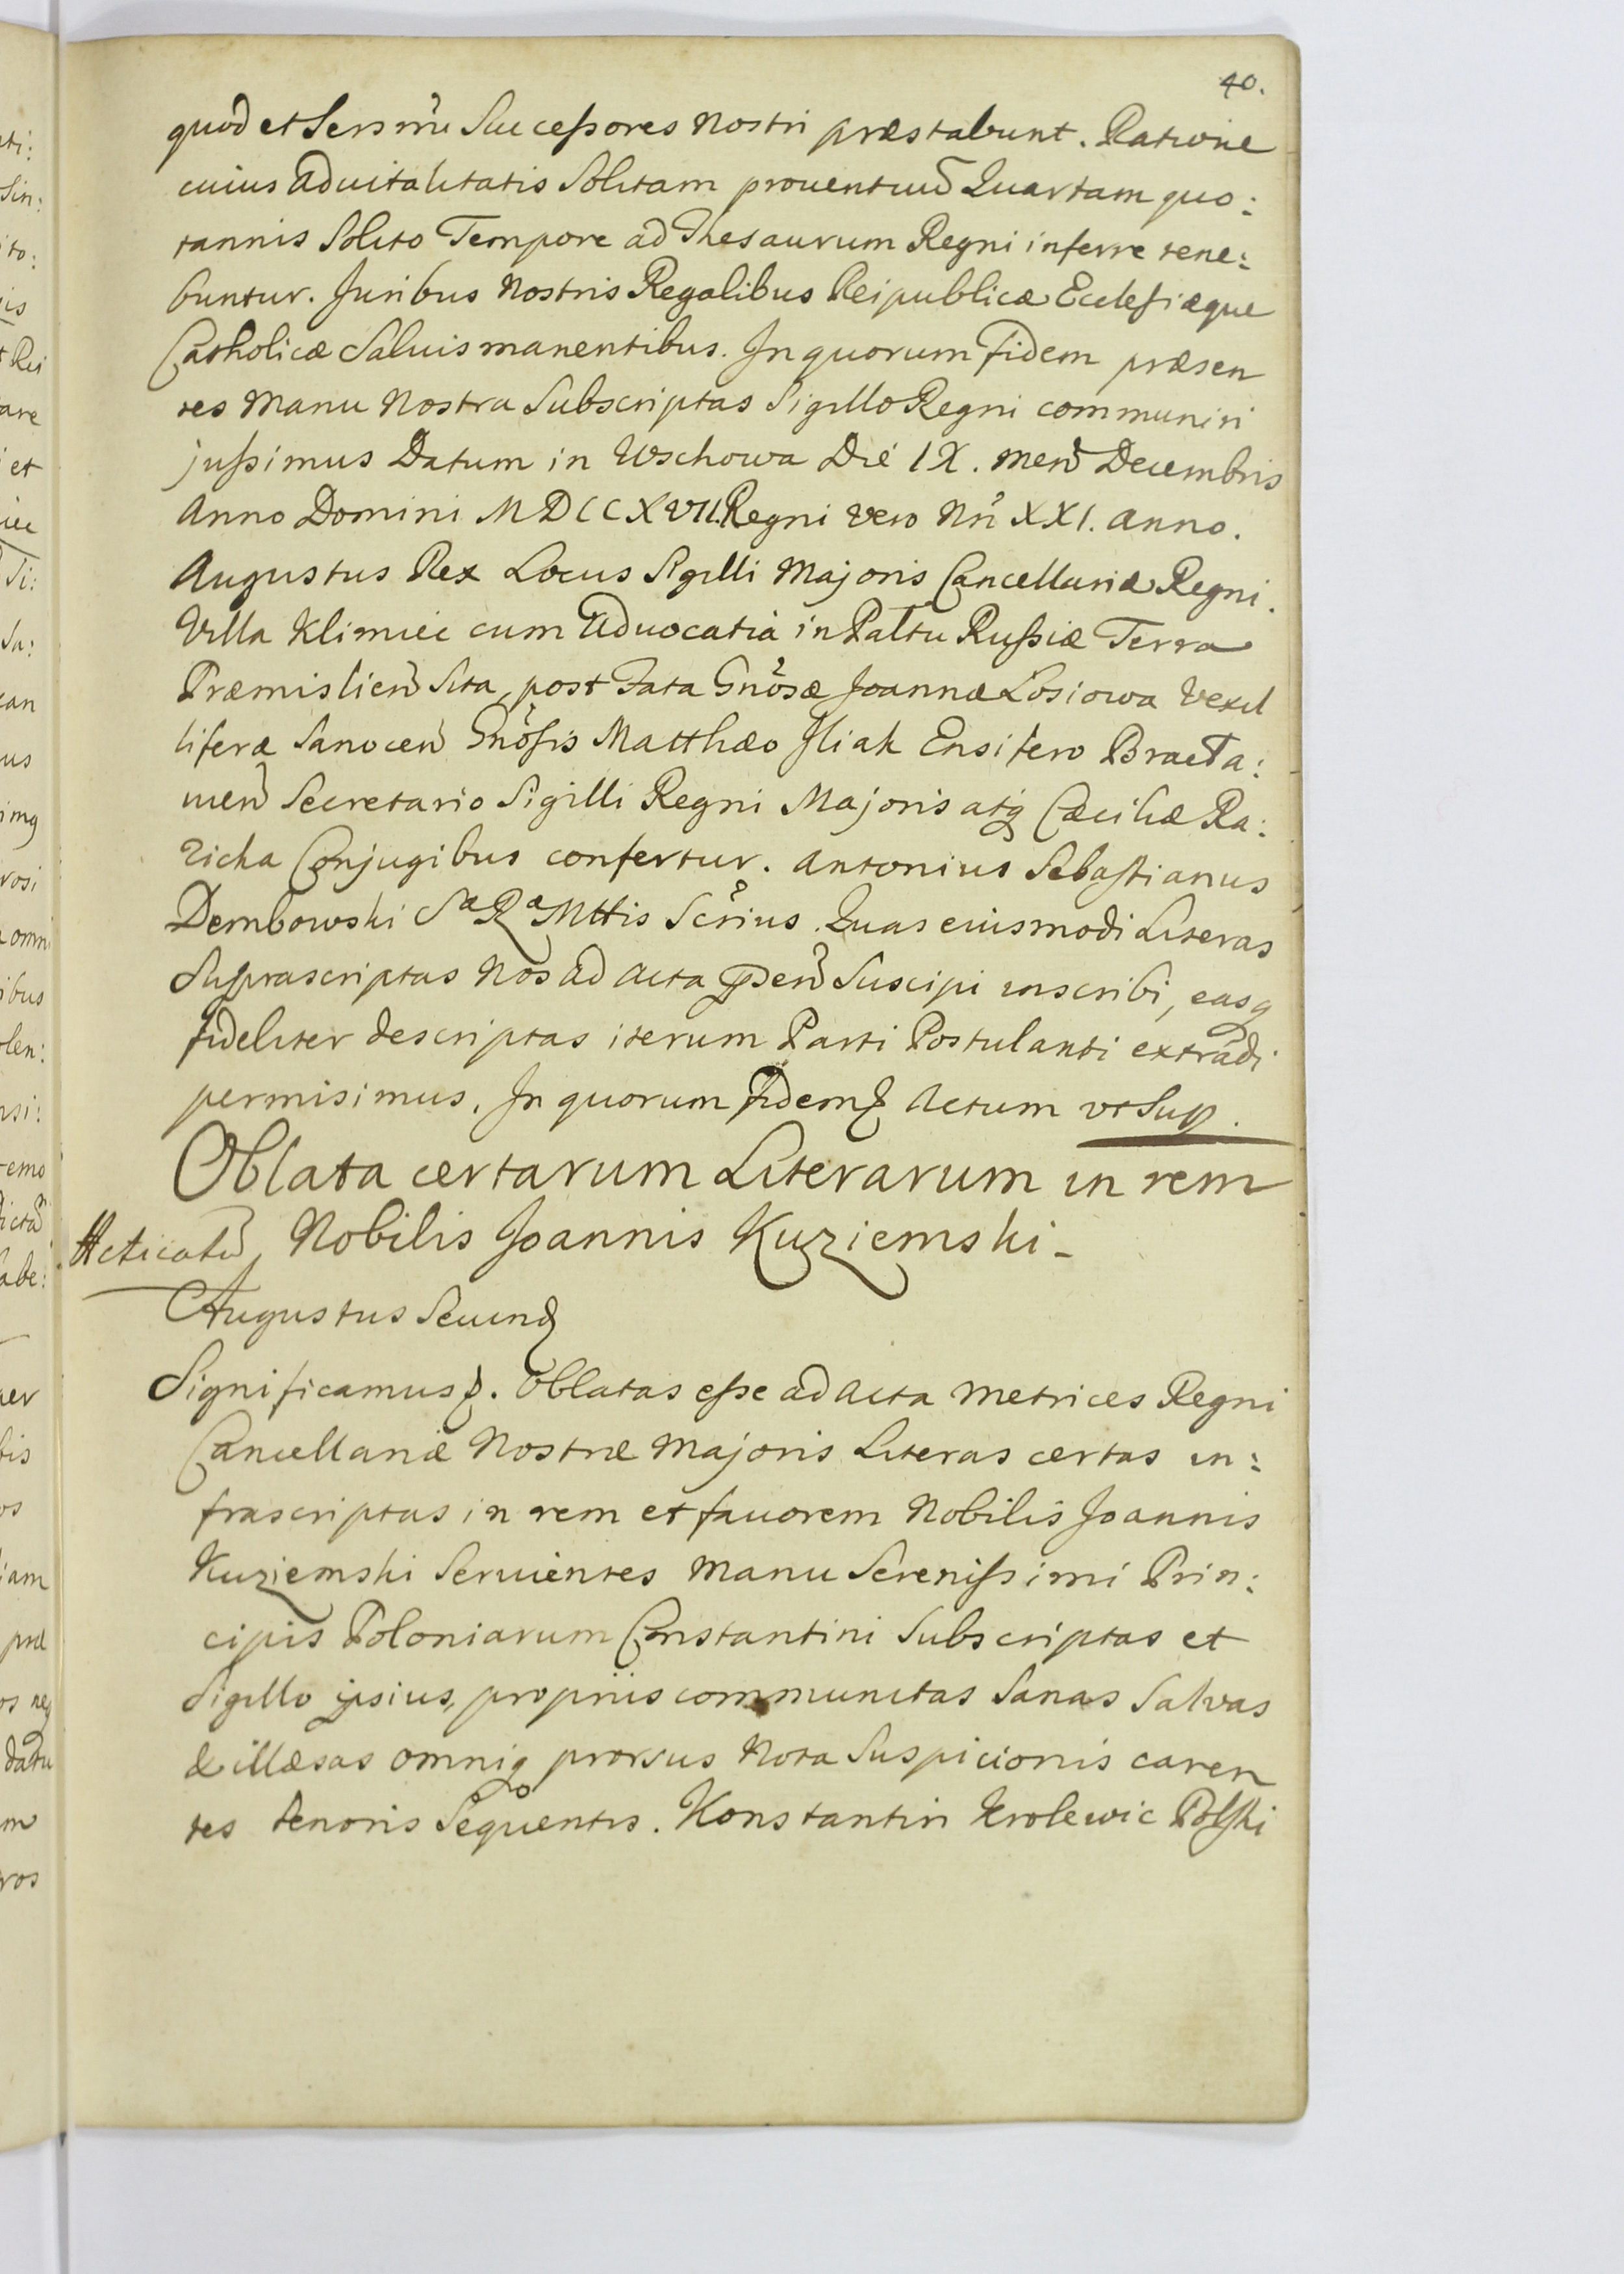 40.
quod et Sersmi Successores Nostri præstabunt. Ratione
cuius Aduitalitatis Solitam prouentuũ Quartam quo:
tannis Solito Tempore ad Thesaurum Regni inferre tene:
buntur. Juribus Nostris Regalibus Reipublicæ Ecclesiæque
Catholicæ Saluis manentibus. In quorum Fidem præsen
tes Manu Nostra Subscriptas Sigillo Regni communiri
jussimus Datum in Wschowa Die IX. Men Decembris
Anno Domini MDCCXVII. Regni vero Nri XXI. Anno.
Augustus Rex Locus Sigilli Majoris Cancellariæ Regni.
Villa Klimiec cum Aduocatia in Paltu Russiæ Terra
Præmislien Sita, post Fata Gnosæ Joannæ Losiowa Vexil
liferæ Sanocen Gnosis Matthæo Iliak Ensifero Bracta:
uien Secretario Sigilli Regni Majoris atq Cæciliæ Ra:
zicha Conjugibus confertur. Antonius Sebastianus
Dembowski Sæ Ræ Mttis Scrius. Quas eiusmodi Literas
Suprascriptas Nos ad Acta pden Suscipi inscribi, easq
fideliter descriptas iterum Parti Postulanti extradi
permisimus. In quorum Fidem Actum vt Sup.
Oblata certarum Literarum in rem
Acticatũ Nobilis Joannis Kuziemski
Augustus Secund
Significamus. Oblatas esse ad Acta Metrices Regni
Cancellariæ Nostræ Majoris Literas certas in:
frascriptas in rem et fauorem Nobilis Joannis
Kuziemski Seruientes Manu Serenissimi Prin:
cipis Poloniarum Constantini Subscriptas et
Sigillo ipsius propriis communitas Sanas Salvas
& illæsas omniq prorsus Nota Suspicionis caren
tes tenoris Sequentis. Konstantin Krolewic Polski